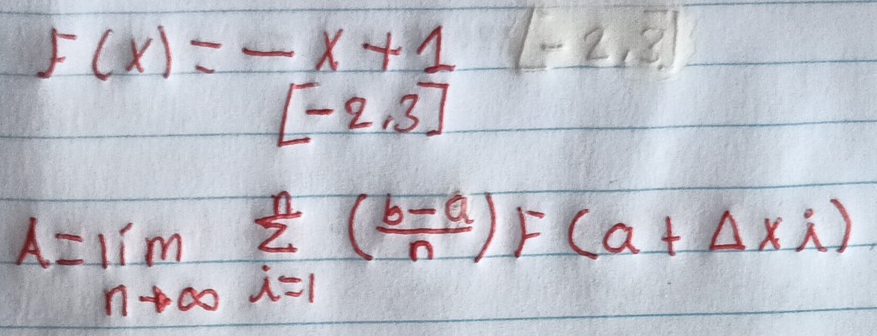 F(x) = - x + 1 [-2,3]
[-2,3]
A = lím n→∞ n Σ i=1 (b-a/n) F(a + Δxi)